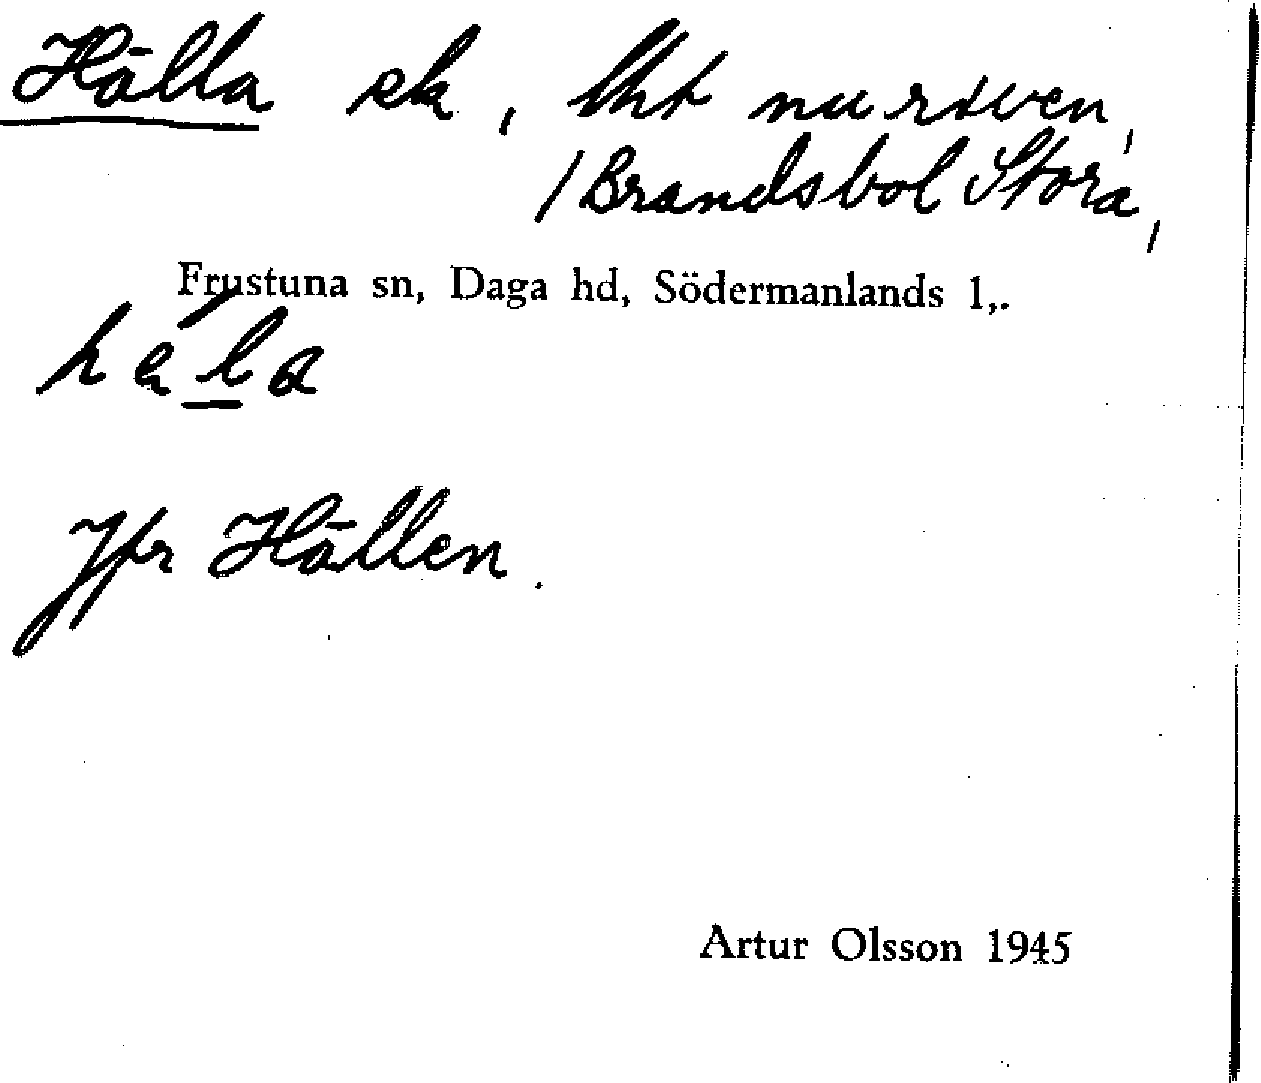 Hälla ek, lht nu riven,
/Brandsbol Stora,
Frustuna sn, Daga hd, Södermanlands l,.
hä́la
Jfr Hällen.
Artur Olsson 1945